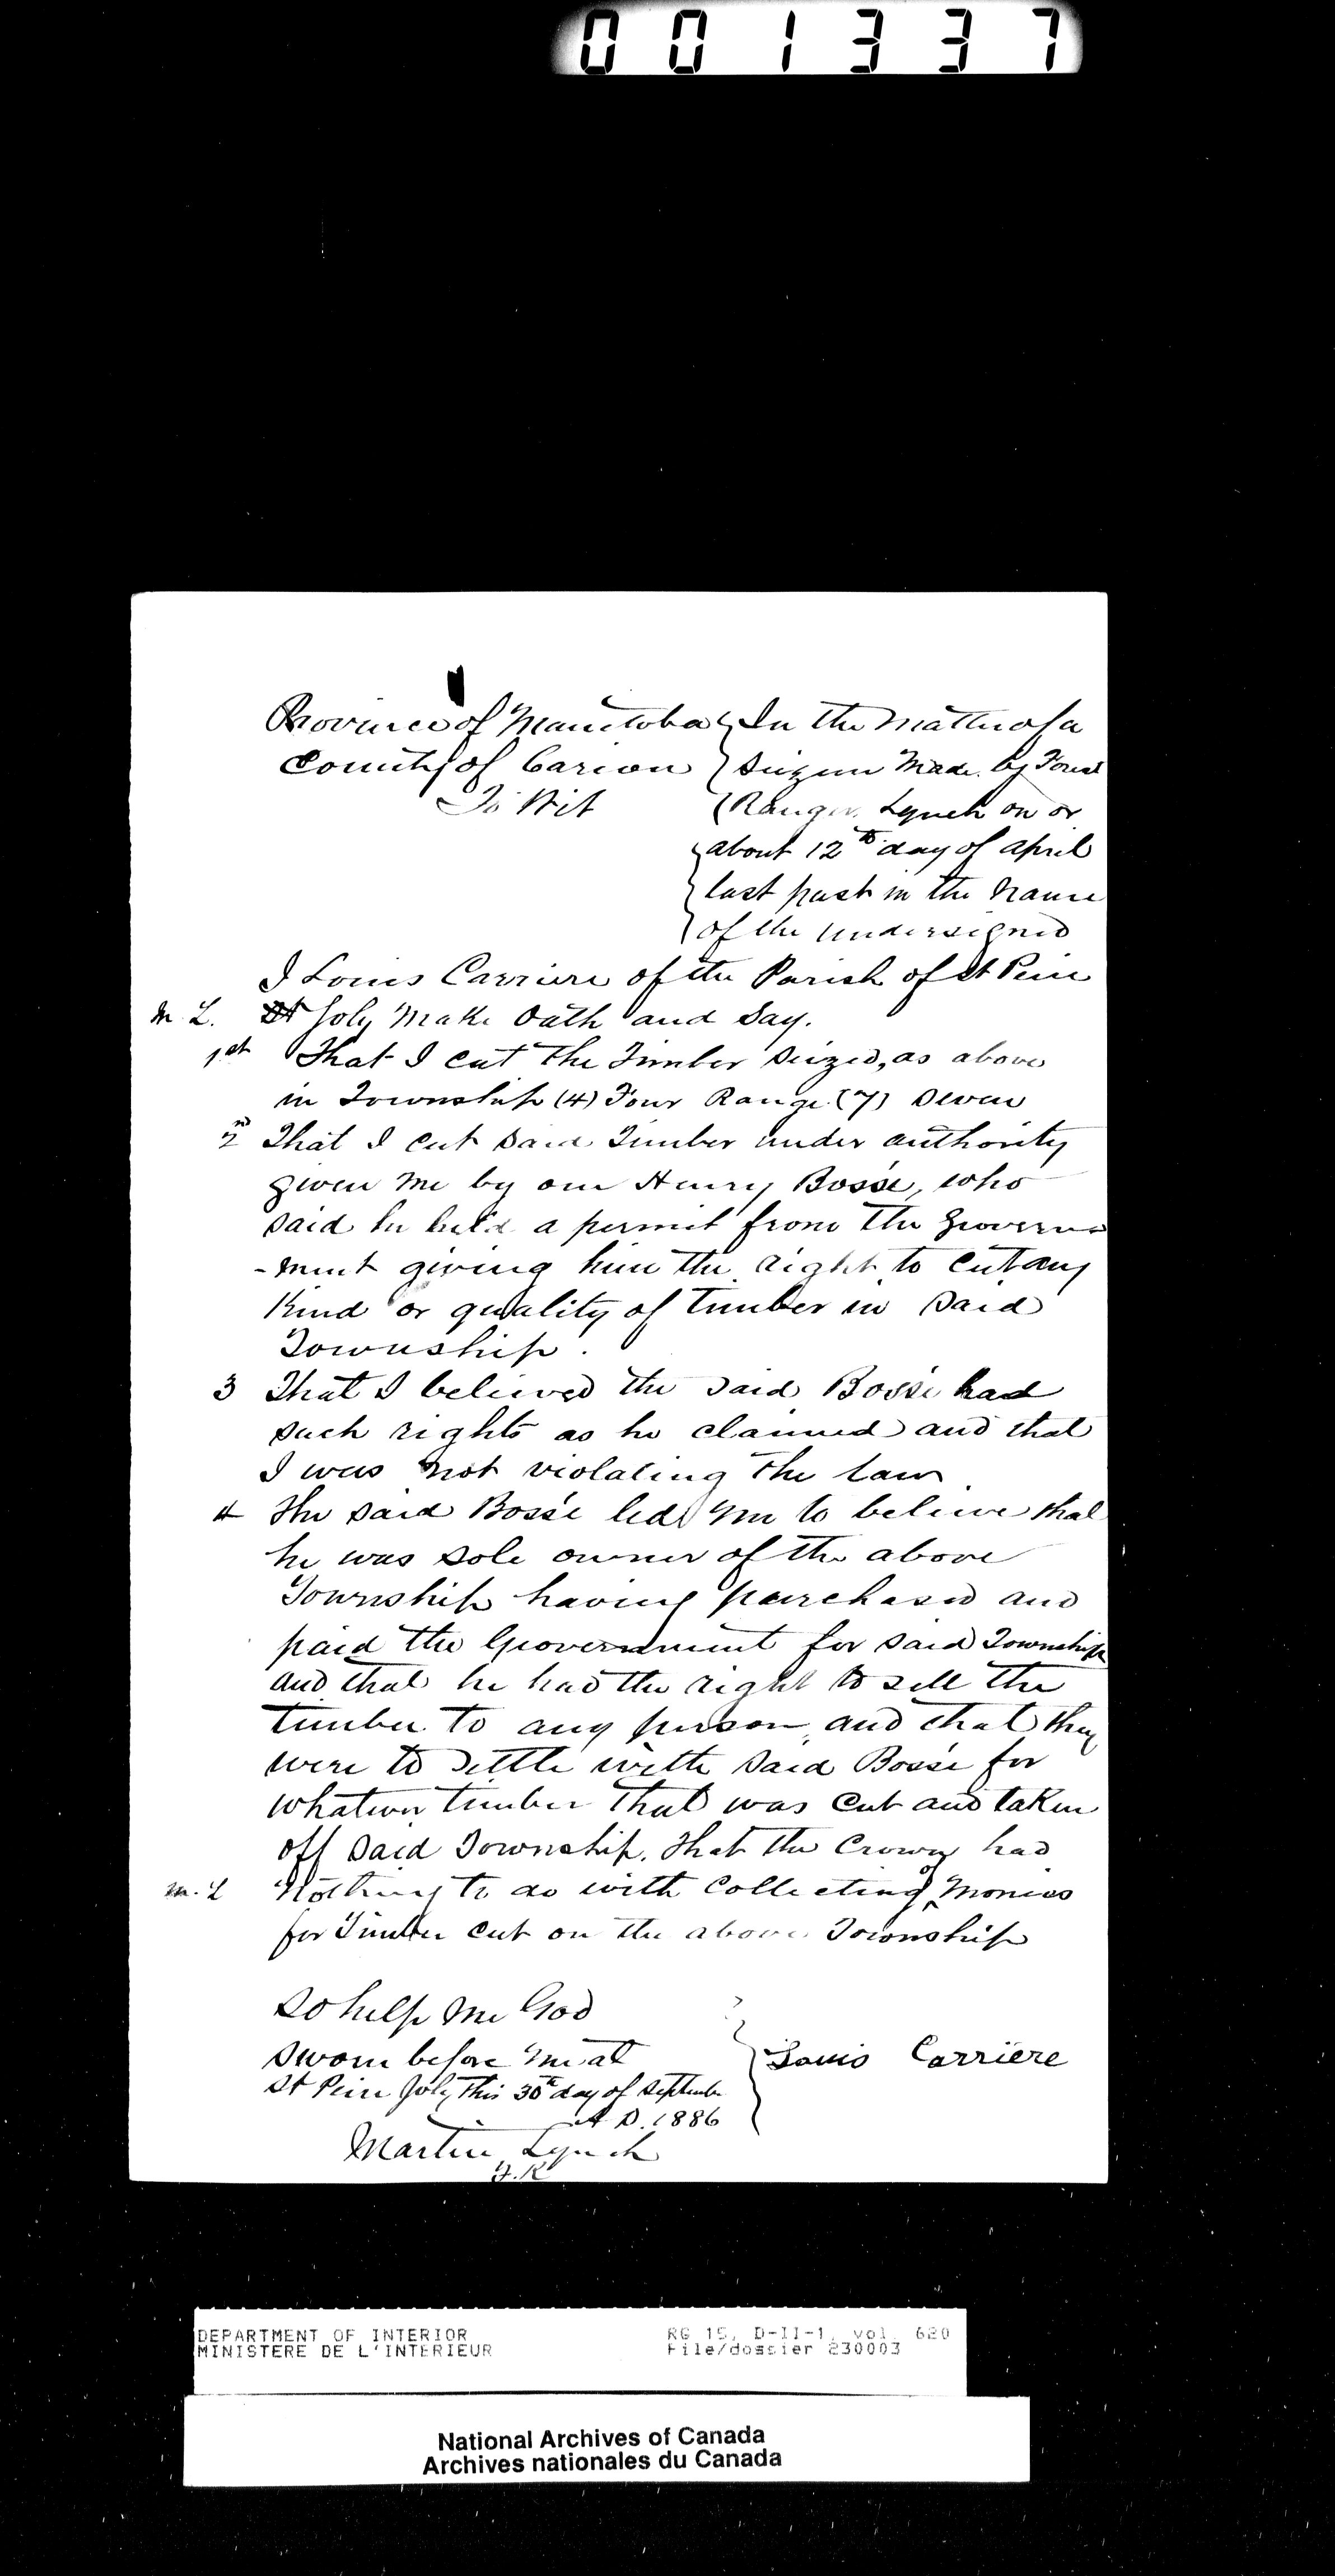 001337
Province of Manitoba } In the matter of a
County of Carion } Seizure Made by Forest
To Wit { Ranger Lynch on or
about 12th day of April
last past in the Name
of the Undersigned
I Louis Carriere of the Parish of St Peire
M. L. Joly Make Oath and Say.
1st That I cut the Timber Seized, as above
in Township (4) Four Range (7) Seven
2nd That I cut Said Timber under authority
given me by one Henry Bossé, who
said he held a permit from the Govern
-ment giving him the right to cut any
Kind or quality of Timber in Said
Township.
3 That I believed the Said Bossé had
such rights as he claimed and that
I was not violating the law
4 The said Bossé led me to believe that
he was sole owner of the above
Township having purchased and
paid the Government for said Township
and that he had the right to sell the
timber to any person, and that they
were to settle with said Bossé for
whatever timber that was cut and taken
off said Township. That the Crown had
M. L Nothing to do with Collecting of Monies
for Timber cut on the above Township
So help me God
Sworn before me at } Louis Carriere
St Peire Joly this 30th day of September
A D. 1886
Martin Lynch
F. R
DEPARTMENT OF INTERIOR RG 15, D-II-1, vol. 620
MINISTERE DE L'INTERIEUR File/dossier 230003
National Archives of Canada
Archives nationales du Canada